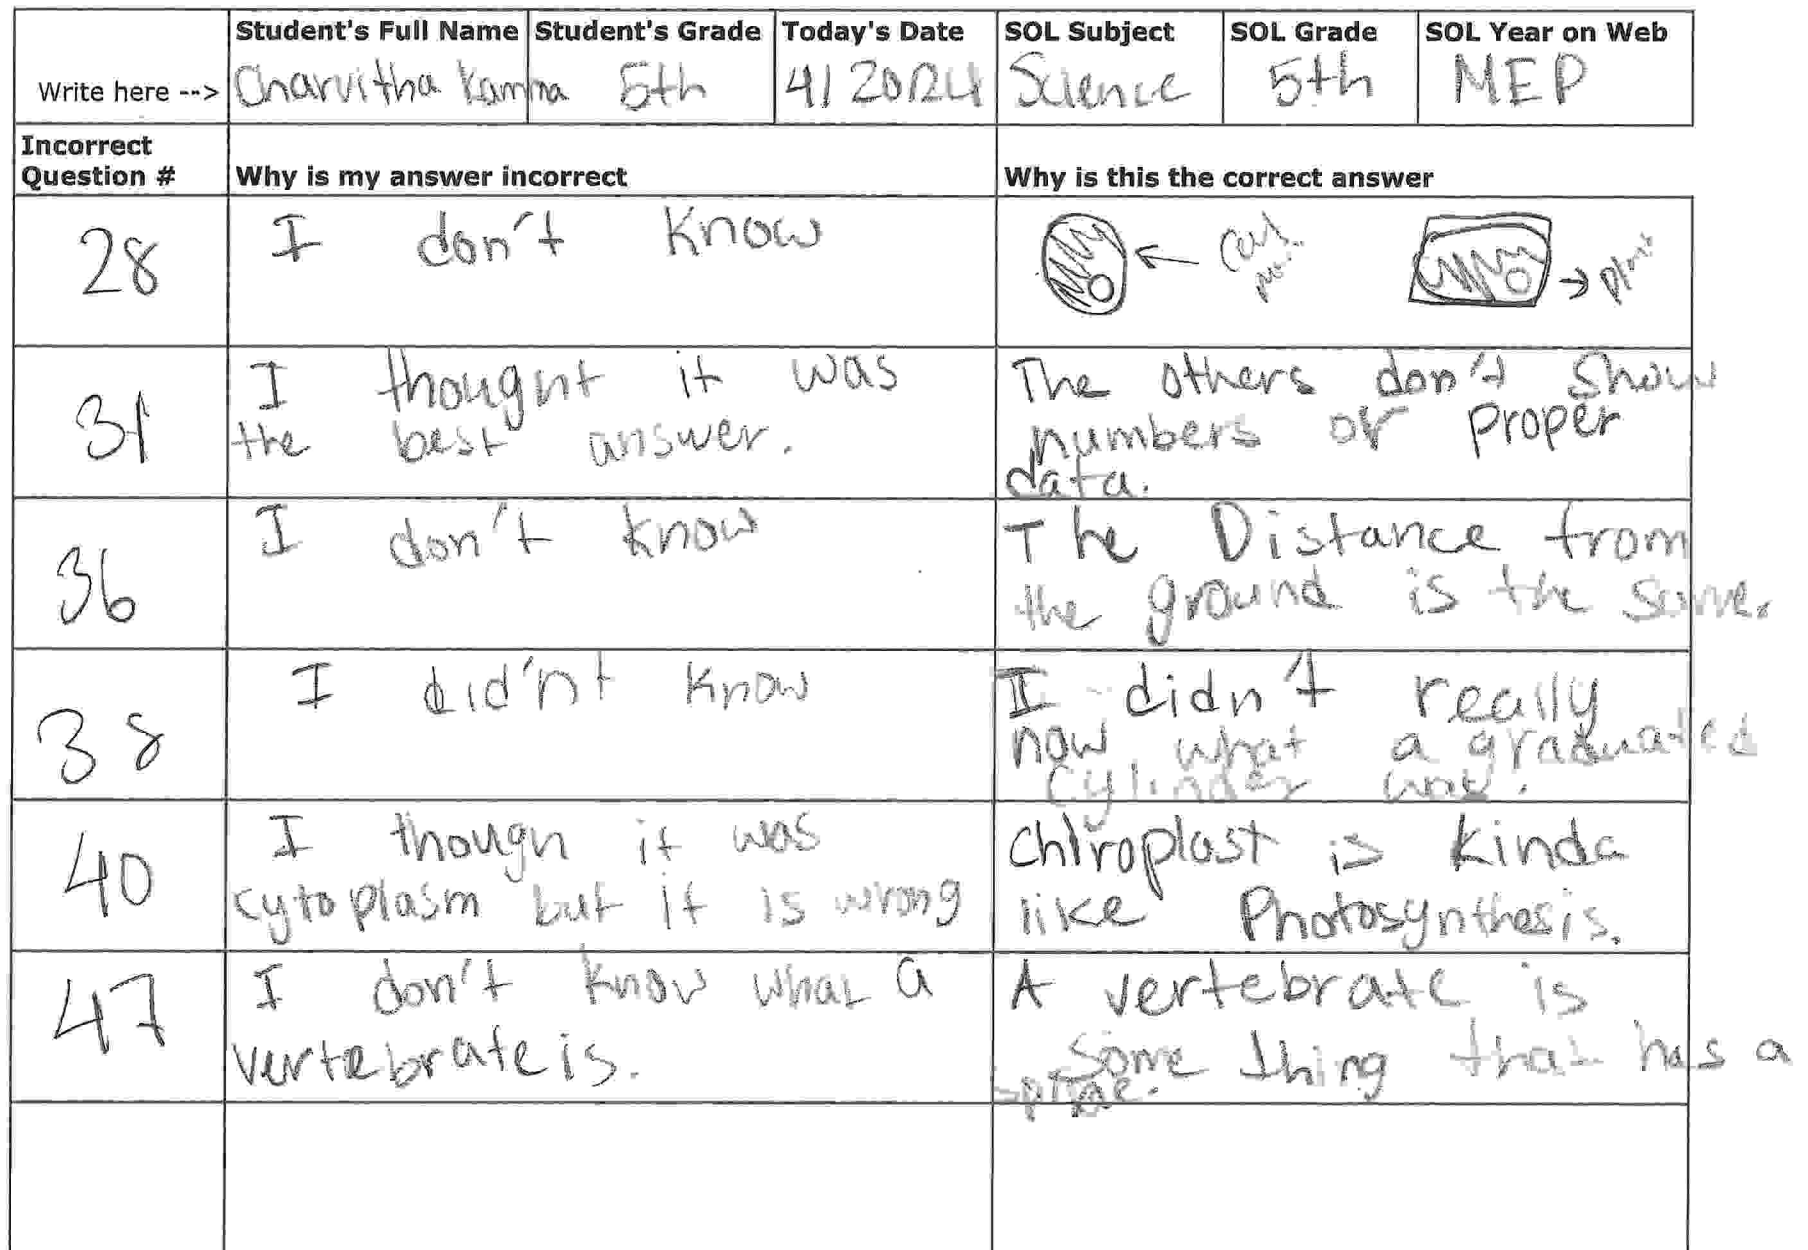 Student's Full Name Student's Grade Today's Date SOL Subject SOL Grade SOL Year on Web
Write here --> Charvitha Kamma 5th Science 5th MEP
Incorrect
Question # Why is my answer incorrect Why is this the correct answer
28 I don't know
31 I thought it was
the best answer.
The others don't show
numbers or proper
data.
36 I don't know
The Distance from
the ground is the same.
38 I did'nt know
I didn't really
now what a graduated
cylinder was.
40 I though it was
cytoplasm but it is wrong
Chlroplast is kinda
like Photosynthesis.
47 I don't know what a
vertebrate is.
A vertebrate is
some thing that has a
spine.